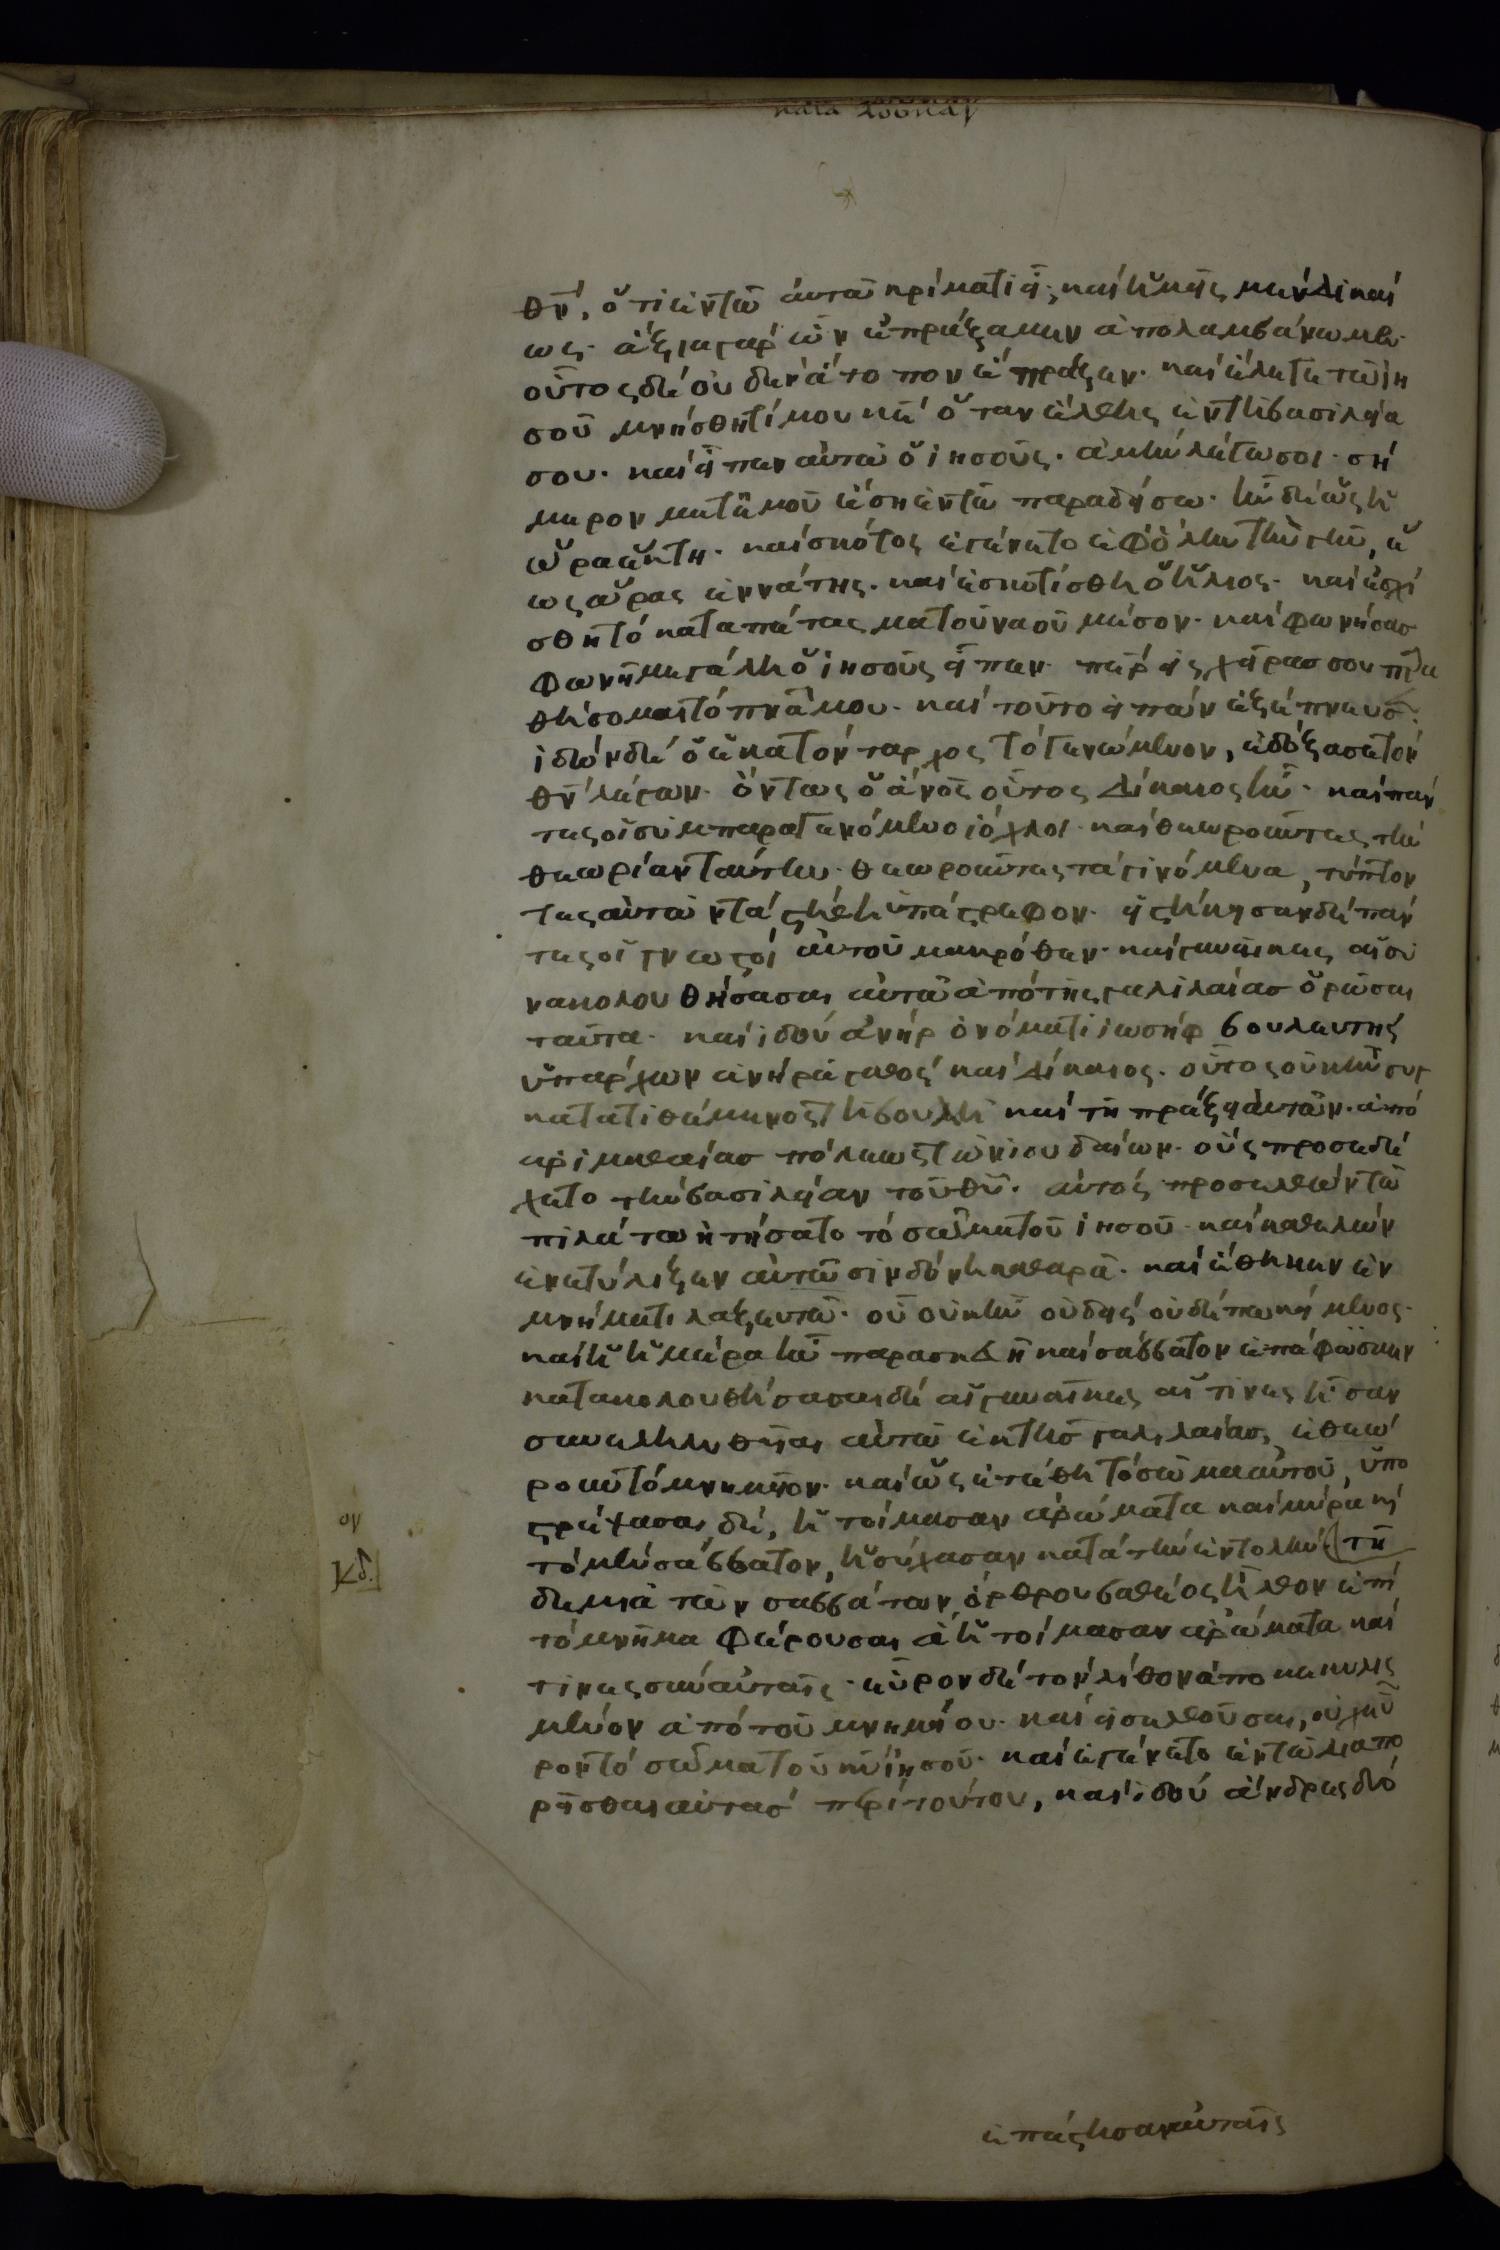 κατὰ λουκᾶν
θν̅, ὅτι ἐν τῶ αὐτῶ κρίματι εἶ; καὶ ἡμεῖς μὲν δικαί
ως· ἄξια γὰρ ὧν ἐπράξαμεν ἀπολαμβάνωμεν·
οὗτος δὲ οὐδὲν ἄτοπον ἔπραξεν· καὶ ἔλεγε τῶ ἰη
σοῦ μνήσθητί μου κε̅ ὅταν ἔλθης ἐν τῆ βασιλεία
σου· καὶ εἶπεν αὐτῶ ὁ ἰησοῦς· ἀμὴν λέγω σοι· σή
μερον μετ' ἐμοῦ ἔση ἐν τῶ παραδείσω· ἦν δὲ ὡς ἡ
ὥρα ἕκτη· καὶ σκότος ἐγένετο ἐφ' ὅλην τὴν γῆν, ἕ
ως ὥρας ἐννάτης· καὶ ἐσκοτίσθη ὁ ἥλιος· καὶ ἐσχί
σθη τὸ καταπέτασμα τοῦ ναοῦ μέσον· καὶ φωνήσας
φωνῆ μεγάλη ὁ ἰησοῦς εἶπεν· περ εἰς χεῖρας σου παρα
θήσομαι τὸ πνα̅ μου· καὶ τοῦτο εἰπὼν ἐξέπνευσεν·
ἰδὼν δὲ ὁ ἑκατόνταρχος τὸ γενόμενον, ἐδόξασε τὸν
θν̅ λέγων· ὄντως ὁ ἄνος̅ οὗτος δίκαιος ἦν· καὶ πάν
τες οἱ συμπαραγενόμενοι ὄχλοι καὶ θεωροῦντες τὴν
θεωρίαν ταύτην· θεωροῦντες τὰ γινόμενα, τύπτον
τες αὐτῶν τὰ στήθη ὑπέστρεφον· εἱστήκησαν δὲ πάν
τες οἱ γνωστοὶ αὐτοῦ μακρόθεν· καὶ γυναῖκες αἱ συ
νακολουθήσασαι αὐτῶ ἀπὸ τῆς γαλιλαίας ὁρῶσαι
ταῦτα· καὶ ἰδοὺ ἀνὴρ ὀνόματι ἰωσὴφ βουλευτὴς
ὑπάρχων ἀνὴρ ἀγαθὸς καὶ δίκαιος· οὗτος οὐκ ἦν συγ
κατατιθέμενος τῆ βουλῆ καὶ τῆ πράξει αὐτῶν· ἀπὸ
ἀριμαθαίας πόλεως τῶν ἰουδαίων· ὃς προσεδέ
χετο τὴν βασιλείαν τοῦ θυ̅· αὐτὸς προσελθὼν τῶ
πιλάτω ἠτήσατο τὸ σῶμα τοῦ ἰησοῦ· καὶ καθελὼν
ἐνετύλιξεν αὐτῶ σινδόνη καθαρᾶ· καὶ ἔθηκεν ἐν
μνήματι λαξευτῶ· οὗ οὐκ ἦν οὐδεὶς οὐδέπω κείμενος·
καὶ ἡ ἡμέρα ἦν παρασκευὴ καὶ σάββατον ἐπέφωσκεν
κατακολουθήσασαι δὲ αἱ γυναῖκες αἵτινες ἦσαν
συνεληλυθεῖαι αὐτῶ ἐκ τῆς γαλιλαίας, ἐθεώ
ρουν τὸ μνημεῖον· καὶ ὡς ἐτέθη τὸ σῶμα αὐτοῦ, ὑπο
στρέψασαι δὲ, ἡτοίμασαν ἀρώματα καὶ μύρα κὶ
τὸ μὲν σάββατον, ἡσύχασαν κατὰ τὴν ἐντολὴν τῆ
δὲ μιᾶ τῶν σαββάτων ὄρθρου βαθέος ἦλθον ἐπὶ
τὸ μνῆμα φέρουσαι ἃ ἡτοίμασαν ἀρώματα καὶ
τινες σὺν αὐταῖς· εὗρον δὲ τὸν λίθον ἀποκεκυλισ
μένον ἀπὸ τοῦ μνημείου· καὶ εἰσελθοῦσαι, οὐχ εὗ
ρον τὸ σῶμα τοῦ κυ̅ ἰησοῦ· καὶ ἐγένετο ἐν τῶ διαπο
ρεῖσθαι αὐτὰς περὶ τούτου, καὶ ἰδοὺ ἄνδρες δύο
ἐπέστησαν αὐταῖς
κδ